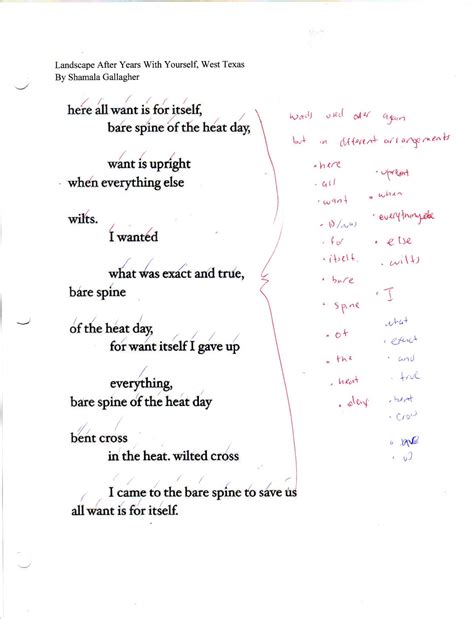 Landscape After Years With Yourself, West Texas
By Shamala Gallagher
here all want is for itself,
bare spine of the heat day,
want is upright
when everything else
wilts.
I wanted
what was exact and true,
bare spine
of the heat day,
for want itself I gave up
everything,
bare spine of the heat day
bent cross
in the heat. wilted cross
I came to the bare spine to save us
all want is for itself.
words used over again
but in different arrangements
• here
• all
• want
• is/was
• for
• itself
• bare
• spine
• of
• the
• heat
• day
• upright
• when
• everything else
• else
• wilts
• I
• what
• exact
• and
• true
• bent
• cross